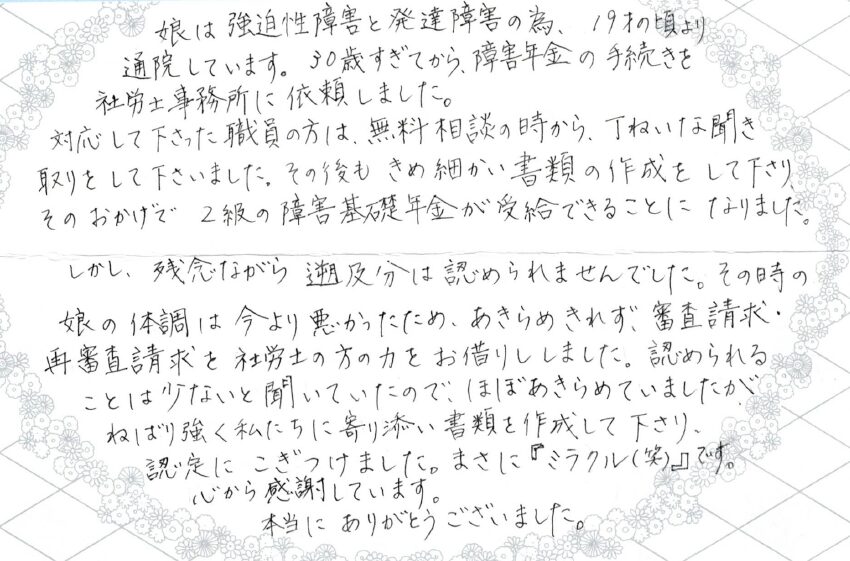 娘は強迫性障害と発達障害の為、19才の頃より
通院しています。30歳すぎてから、障害年金の手続きを
社労士事務所に依頼しました。
対応して下さった職員の方は、無料相談の時から、丁ねいな聞き
取りをして下さいました。その後もきめ細かい書類の作成をして下さり、
そのおかげで2級の障害基礎年金が受給できることになりました。
しかし、残念ながら遡及分は認められませんでした。その時の
娘の体調は今より悪かったため、あきらめきれず、審査請求・
再審査請求を社労士の方の力をお借りししました。認められる
ことは少ないと聞いていたので、ほぼあきらめていましたが、
ねばり強く私たちに寄り添い書類を作成して下さり、
認定にこぎつけました。まさに『ミラクル(笑)』です。
心から感謝しています。
本当にありがとうございました。